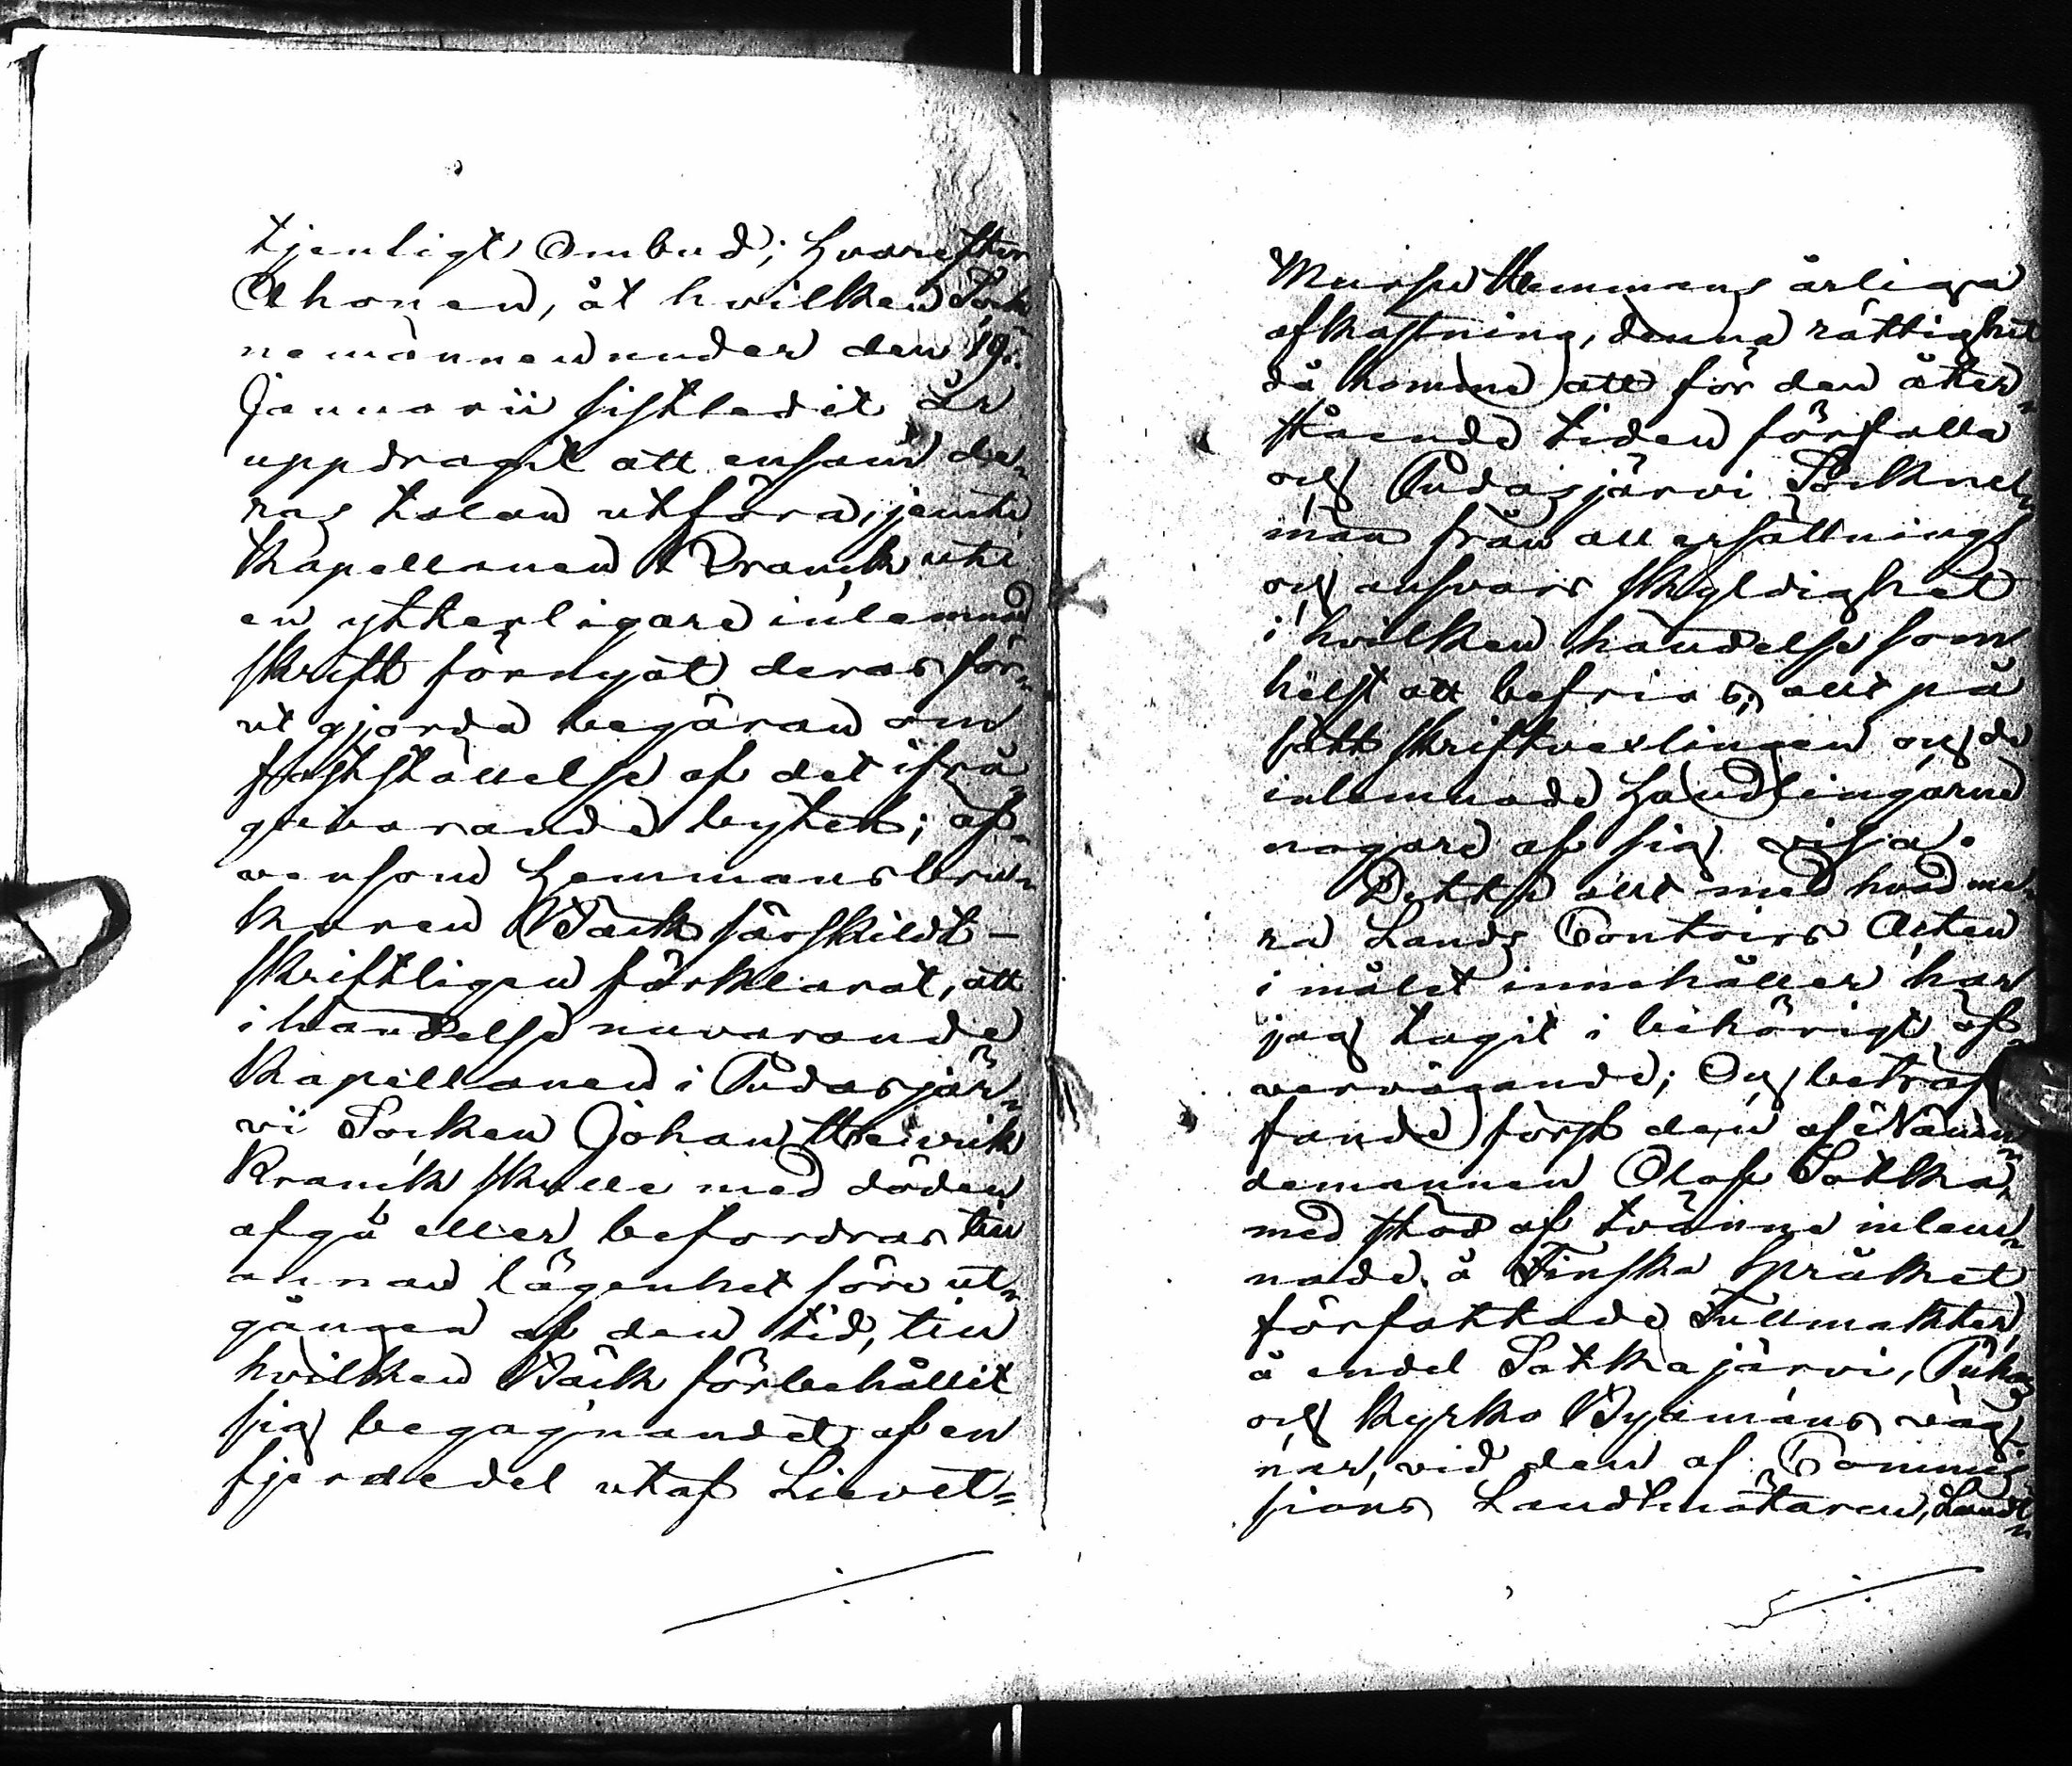 tjenligt Ombud; hvarefter
Ahonen, åt hvilken Sock-
nemännen under den 19:
Januarii sistledit År
uppdragit att ensam de-
ras talan utföra, jemte
Kapellanen Kranck uti
en ytterligare inlemnad
skrift förnyat deras för-
ut gjorda begäran om
fastställelse af det ifrå-
gavarande bytet; äf-
vensom hemmansbru-
karen Bäck särskildt -
skriftligen förklarat, att
i händelse nuvarande
Kapellanen i Pudasjär-
vi Socken Johan Henrik
Kranck skulle med döden
afgå eller befordras till
annan lägenhet före ut-
gången af den tid, till
hvilken Bäck förbehållit
sig begagnandet af en
fjerdedel utaf Lievet-
Mursu Hemmans årliga
afkastning, denna rättighet
då komme att för den åter-
stående tiden förfalla
och Pudasjärvi Sockne-
män från all ersättnings
och ansvars skyldighet
i hvilken händelse som
hälst att befrias; allt på
sätt skriftvexlingen och de
inlemnade handlingarne
nogare af sig visa.
Detta allt med hvad me-
ra Lands Contoirs Acten
i målet innehåller har
jag tagit i behörigt öf-
vervägande; Och beträf-
fande först den af Nämn-
demannen Olof Sotka,
med stöd af tvänne inlem-
nade, å Finska Språket
författade Fullmakter,
å endel Sotkajärvi,
och Kyrko Byamäns väg-
nar, vid den af Commis-
sions Landtmätaren, Landt-